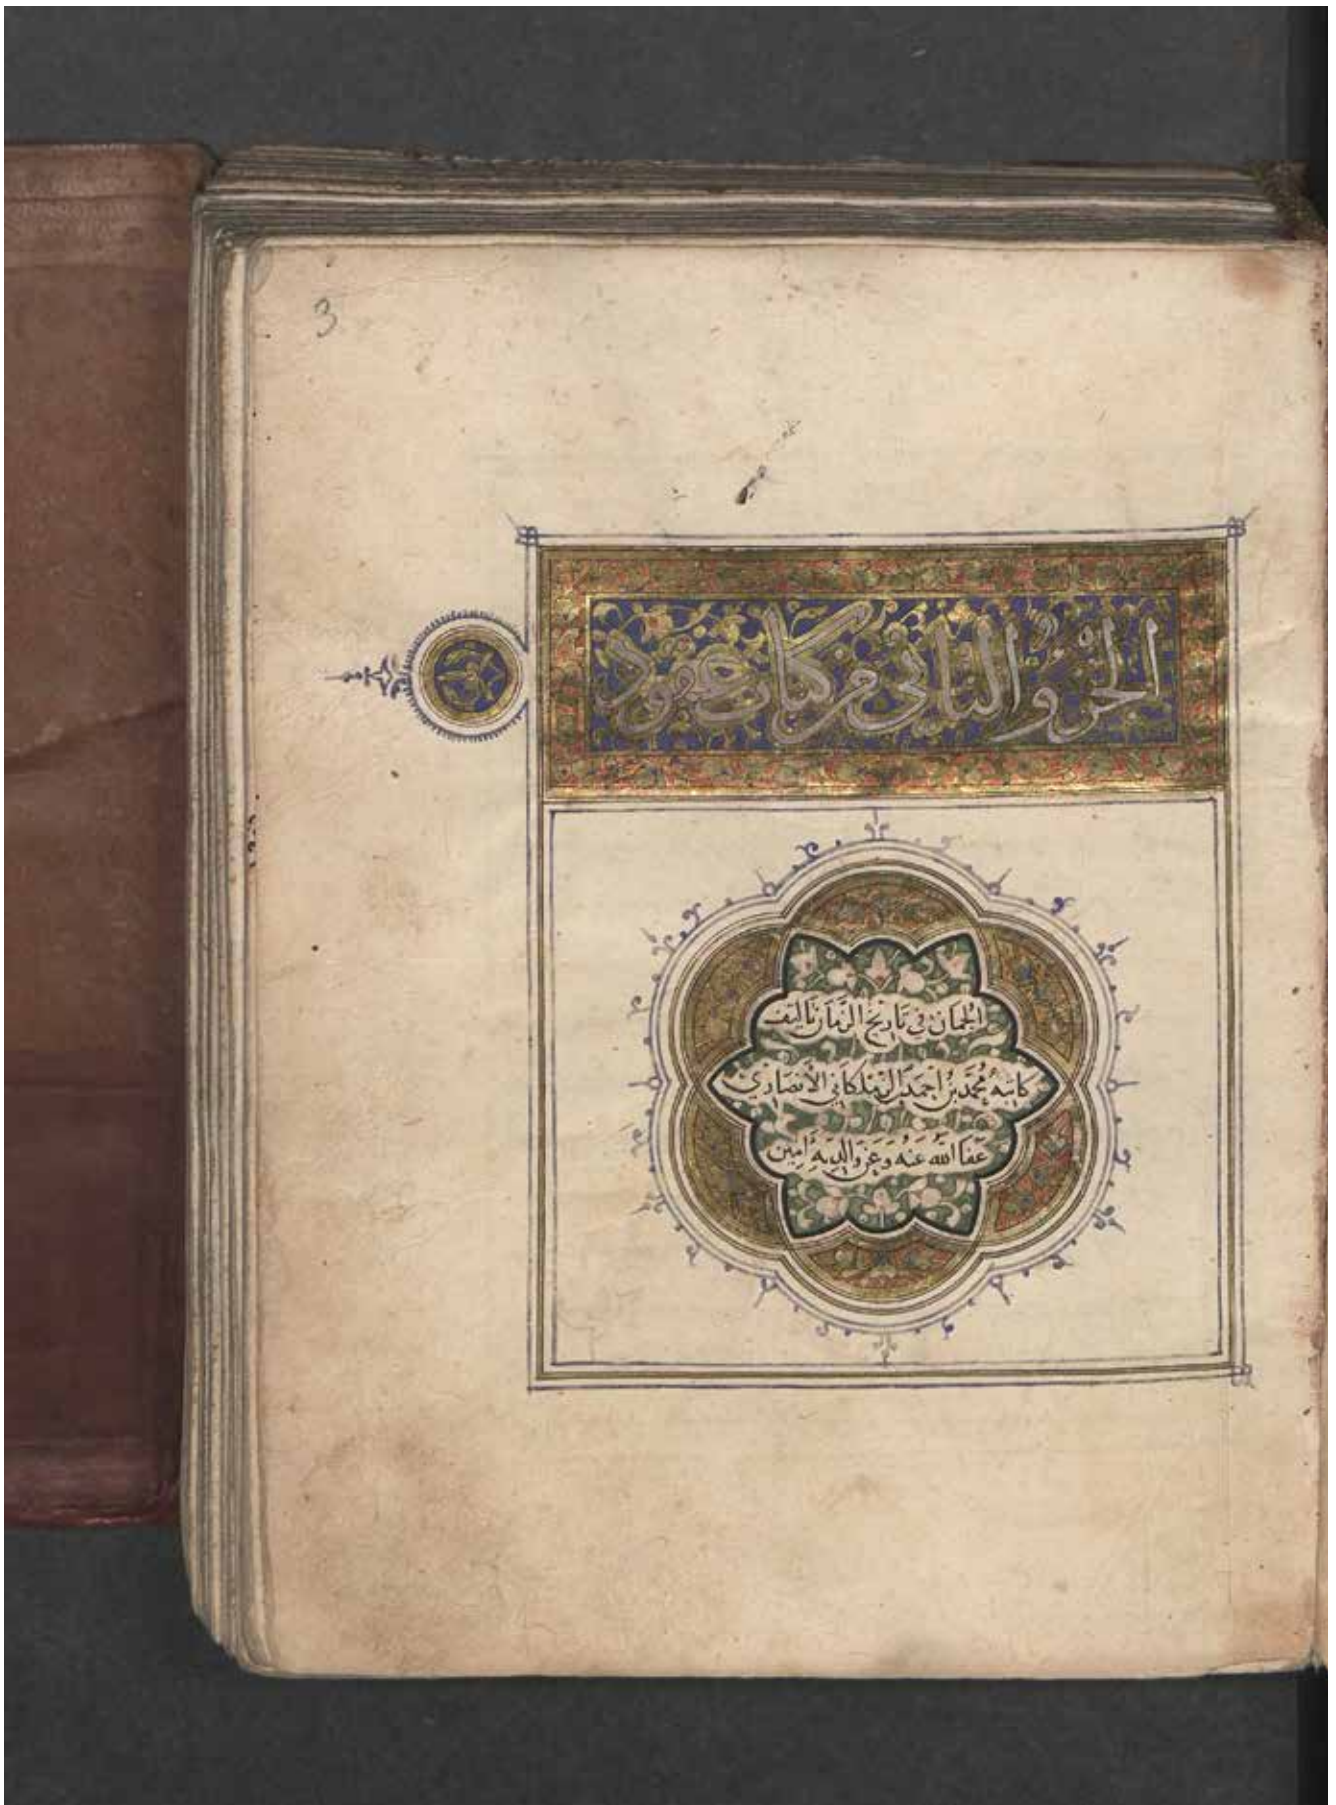 3
الجزؤ الثاني من كتاب عقود
الجمان في تاريخ الزمان تاليف
كاتبه مُحَمَّد بن احمد الزملكاني الأنصاري
عَفَا الله عَنهُ وَعَن وَالديه آمين